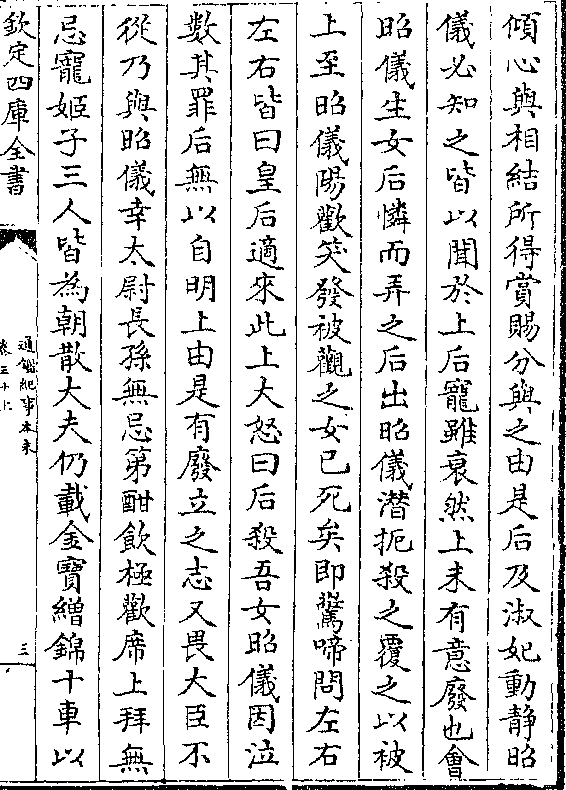 傾心與相結所得賞賜分與之由是后及淑妃動静昭
儀必知之皆以聞於上后寵雖衰然上未有意廢也會
昭儀生女后憐而弄之后出昭儀潛扼殺之覆之以被
上至昭儀陽歡笑發被觀之女已死矣即驚啼問左右
左右皆曰皇后適來此上大怒曰后殺吾女昭儀因泣
數其罪后無以自明上由是有廢立之志又畏大臣不
從乃與昭儀幸太尉長孫無忌第酣飲極歡席上拜無
忌寵姬子三人皆為朝散大夫仍載金寶繒錦十車以
欽定四庫全書
通鑑紀事本末
卷三十上
三